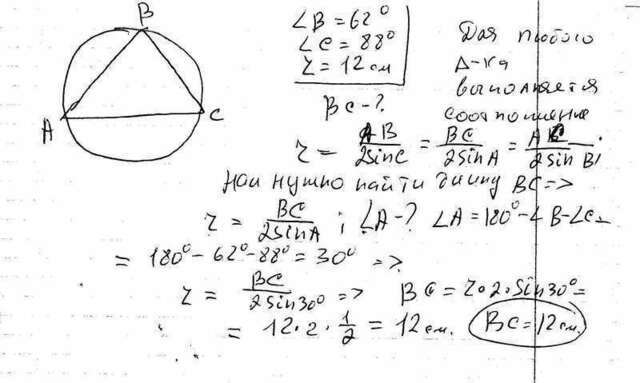 B
A
C
∠B = 62°
∠C = 88°
r = 12 см
BC - ?
Для любого
Δ-ка
выполняется
соотношение
r = AB/2sinC = BC/2sinA = AC/2sinB.
Нам нужно найти длину BC =>
r = BC/2sinA ; ∠A - ? ∠A = 180° - ∠B - ∠C =
= 180° - 62° - 88° = 30° =>
r = BC/2sin30° => BC = r·2·sin30° =
= 12·2·1/2 = 12 см. BC = 12 см.